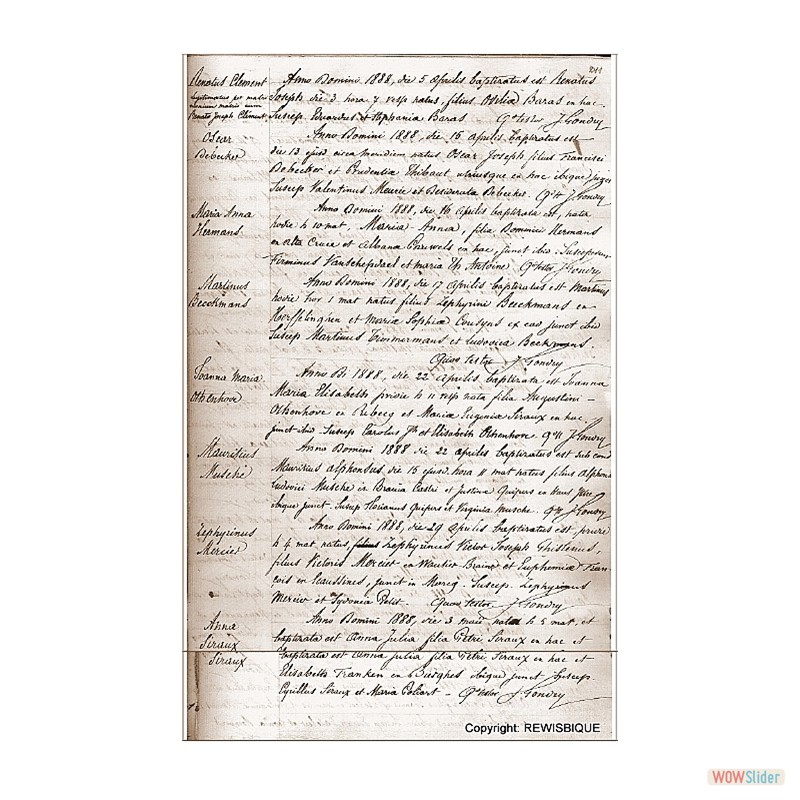 Renatus Clement
legitimatus per matri
Renato Joseph Clement
Anno Domini 1888, die 5 aprilis baptizatus est Renatus
Joseph die 3 hora 7 vesp natus, filius Otilia Baras en hac.
Suscep. Eduardus et Stephania Baras. Qd testor J. Gondry
Oscar
Debecker
Anno Domini 1888, die 15 aprilis baptizatus est
die 13 ejusd circa meridiem natus Oscar Joseph filius Francisci
Debecker et Prudentia Thibaut utriusque en hac ibique
Suscep Valentinus Meurie et Desiderata Debecker. J. Gondry
Maria Anna
Hermans
Anno Domini 1888, die 16 Aprilis baptizata est, nata
hodie h 10 mat, Maria Anna, filia Dominici Hermans
en alta Cruce et Albana in hac, junct ibid.
Firminus et Maria Th Antoine Qd testor J. Gondry
Martinus
Beeckmans
Anno Domini 1888, die 17 Aprilis baptizatus est Martinus
hodie hor 1 mat natus filius Zephyrini Beeckmans en
et Maria Sophia Cousyns ex ead junct ibid
Suscep Martinus Timmermans et Ludovica Beekmans
Quod testor J. Gondry
Joanna Maria
Othenhove
Anno D. 1888, die 22 aprilis baptizata est Joanna
Maria Elisabeth pridie h 11 vesp nata filia Augustini
Othenhove en Rebecq et Maria Eugenia Siraux en hac
junct ibid. Suscep Carolus Jh et Elisabeth Othenhove Qd tt J. Gondry
Mauritius
Musche
Anno Domini 1888 die 22 aprilis baptizatus est sub cond
Mauritius Alphonsus die 15 ejusd. hora 11 mat natus filius Alphons
Ludovici Musche in Braina Castri et Justina Quipers
ibique junct. Suscep Florianus Quipers et Virginia Musche. J. Gondry
Zephyrinus
Mercier
Anno Domini 1888, die 29 aprilis baptizatus est, pridie
h 4 mat natus, Zephyrinus Victor Joseph Ghislenus,
filius Victoris Mercier en Wautier Braine et Euphemia Fran
çois en Ecaussines, junct in Marcq. Suscep. Zephyrinus
Mercier et Sydonia Petit. Quod testor J. Gondry
Anna
Siraux
Anno Domini 1888, die 3 maii nata h 5 mat, et
baptizata est Anna Julia filia Petri Siraux en hac et
baptizata est Anna Julia filia Petri Siraux en hac et
Siraux
Elisabeth Franken en Bierghes ibique junct Suscep
Cyrillus Siraux et Maria Poliart - Qd testor J. Gondry
Copyright: REWISBIQUE
WOWSlider